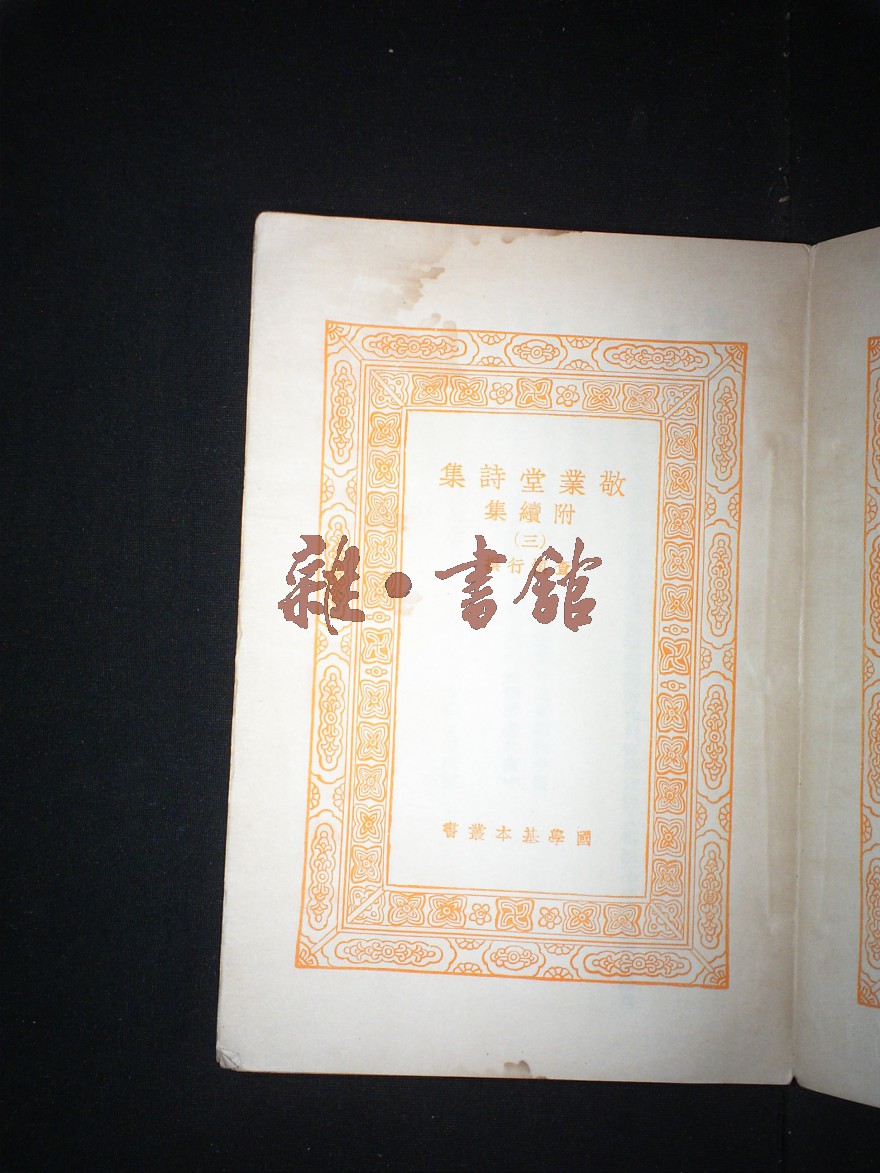 敬業堂詩集
附續集
(三)
行
雜·書館
國學基本叢書